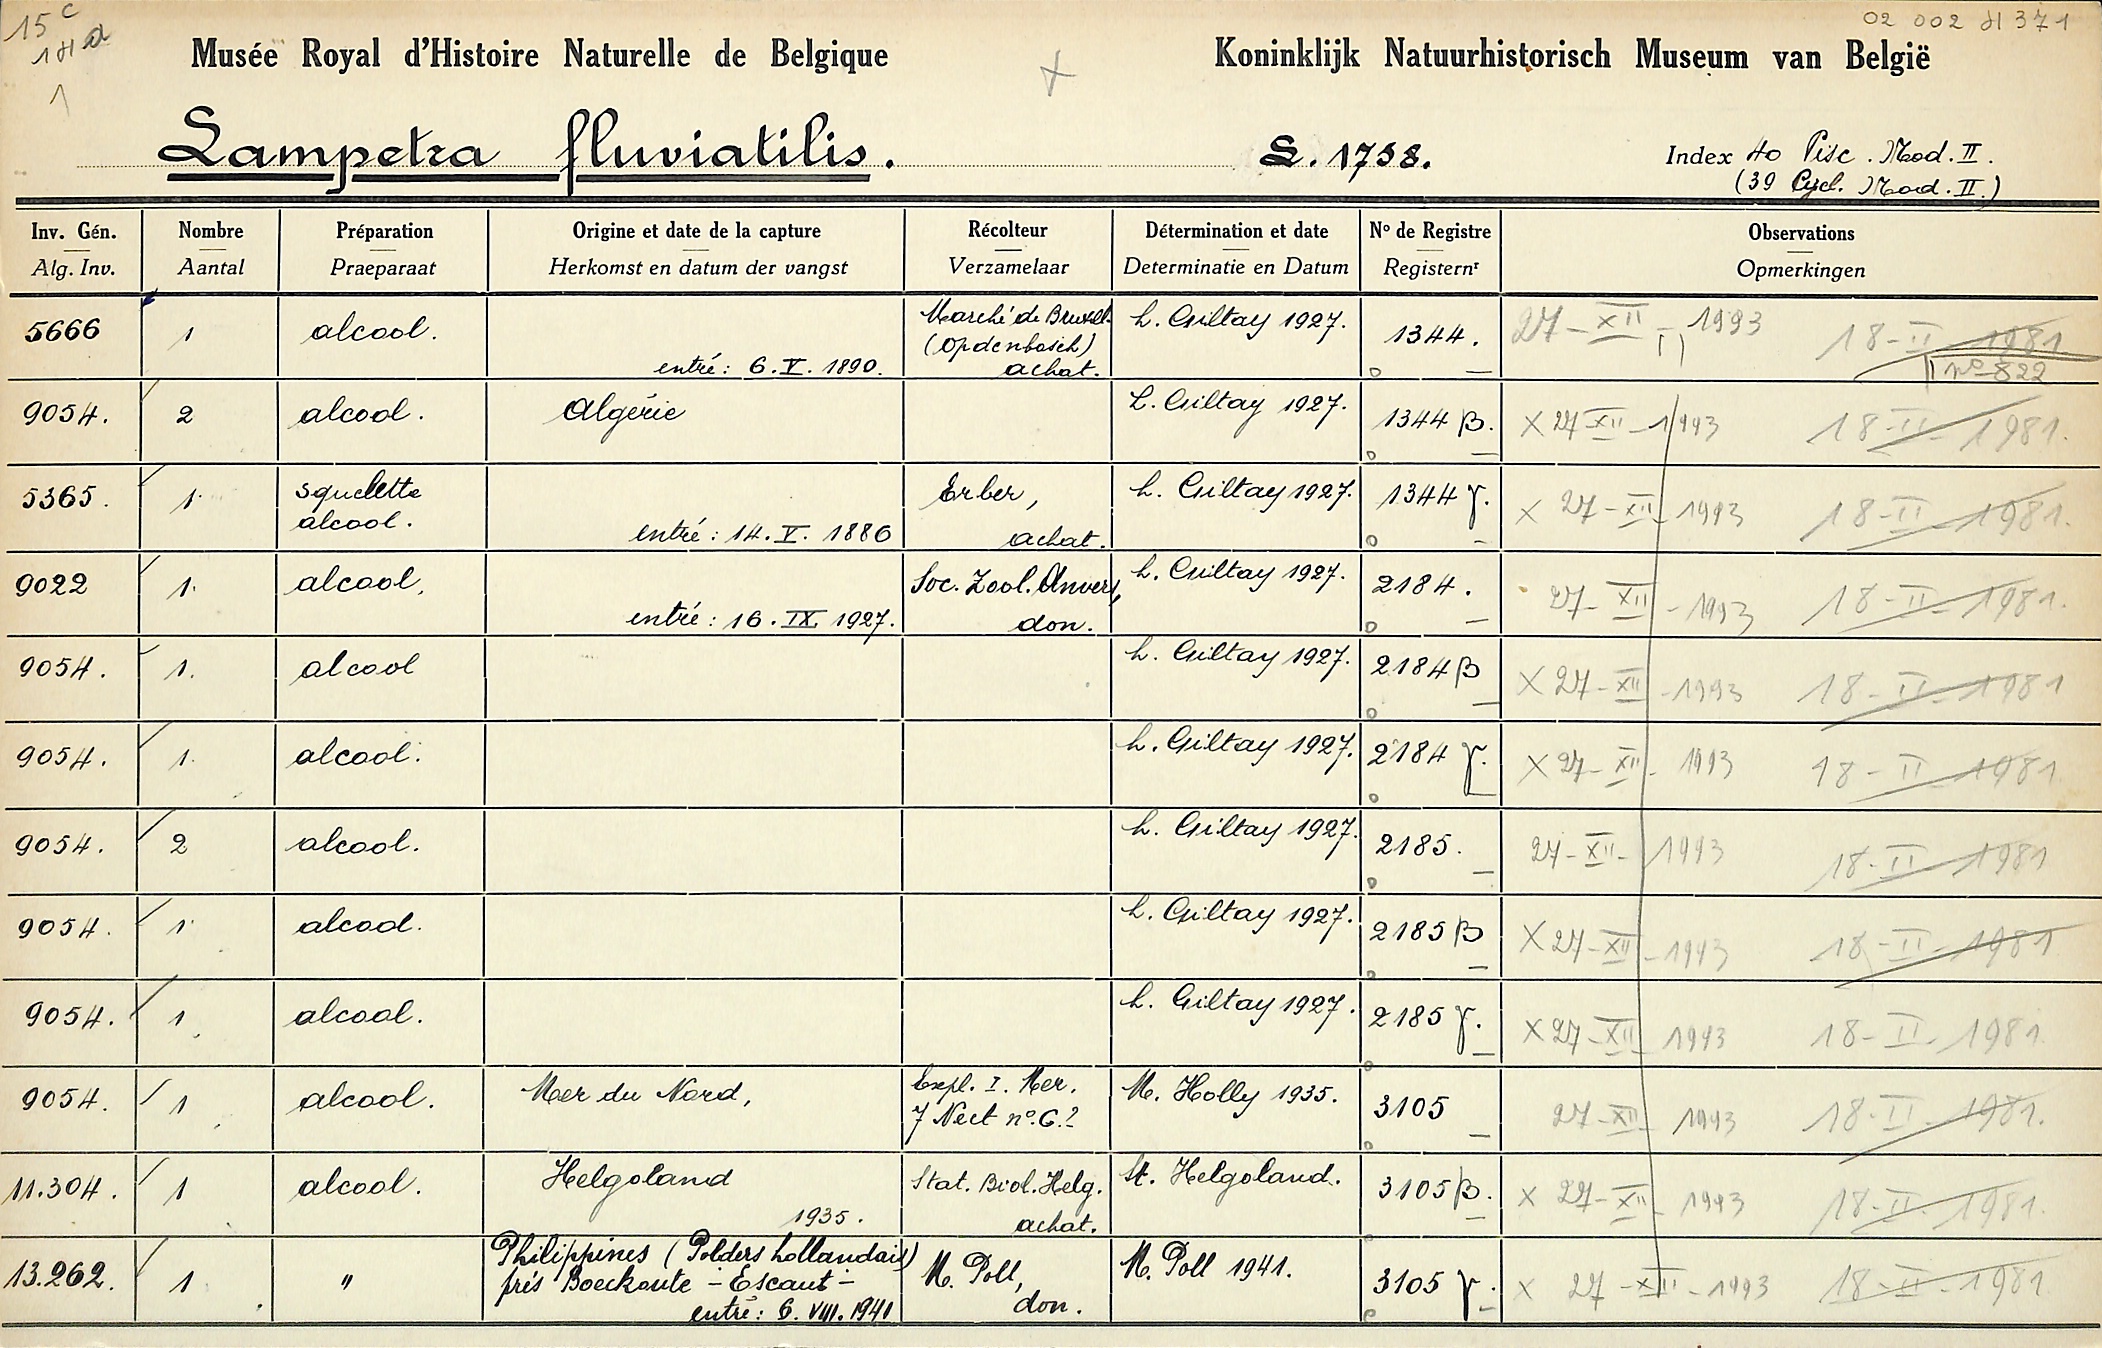 15 c
02 002 H 371
1 H a
1
Musée Royal d'Histoire Naturelle de Belgique Koninklijk Natuurhistorisch Museum van België
Lampetra fluviatilis. L. 1758. Index 40 Pisc. Mod. II.
(39 Cycl. Mod. II.)
Inv. Gén. Nombre Préparation Origine et date de la capture Récolteur Détermination et date No de Registre Observations
Alg. Inv. Aantal Praeparaat Herkomst en datum der vangst Verzamelaar Determinatie en Datum Registernr Opmerkingen
5666 1 alcool. entré: 6.V.1890. Marché de Bruxel. (Opdenbosch) achat. L. Giltay 1927. 1344. 27-XII-1993 18-II-1981
no-822
9054. 2 alcool. Algérie L. Giltay 1927. 1344 β. X 27-XII-1993 18-II-1981.
5365. 1. squelette alcool. entré: 14.V.1886 Erber, achat. L. Giltay 1927. 1344 γ. X 27-XII-1993 18-II-1981.
9022 1. alcool, entré: 16.IX.1927. Soc. Zool. Anvers, don. L. Giltay 1927. 2184. 27-XII-1993 18-II-1981.
9054. 1. alcool L. Giltay 1927. 2184 β X 27-XII-1993 18-II-1981
9054. 1. alcool. L. Giltay 1927. 2184 γ. X 27-XII-1993 18-II-1981
9054. 2 alcool. L. Giltay 1927. 2185. 27-XII-1993 18-II-1981
9054. 1. alcool. L. Giltay 1927. 2185 β X 27-XII-1993 18-II-1981
9054. 1 alcool. L. Giltay 1927. 2185 γ. X 27-XII-1993 18-II-1981.
9054. 1 alcool. Mer du Nord, Expl. I. Mer. 7 Nect no. 6.? M. Holly 1935. 3105 27-XII-1993 18-II-1981.
11.304. 1 alcool. Helgoland 1935. Stat. Biol. Helg. achat. St. Helgoland. 3105 β. X 27-XII-1993 18-II-1981.
13.262. 1 " Philippines (Polders hollandais) près Boeckoute - Escaut - entré: 6.VIII.1941 M. Poll, don. M. Poll 1941. 3105 γ. X 27-XII-1993 18-II-1981.